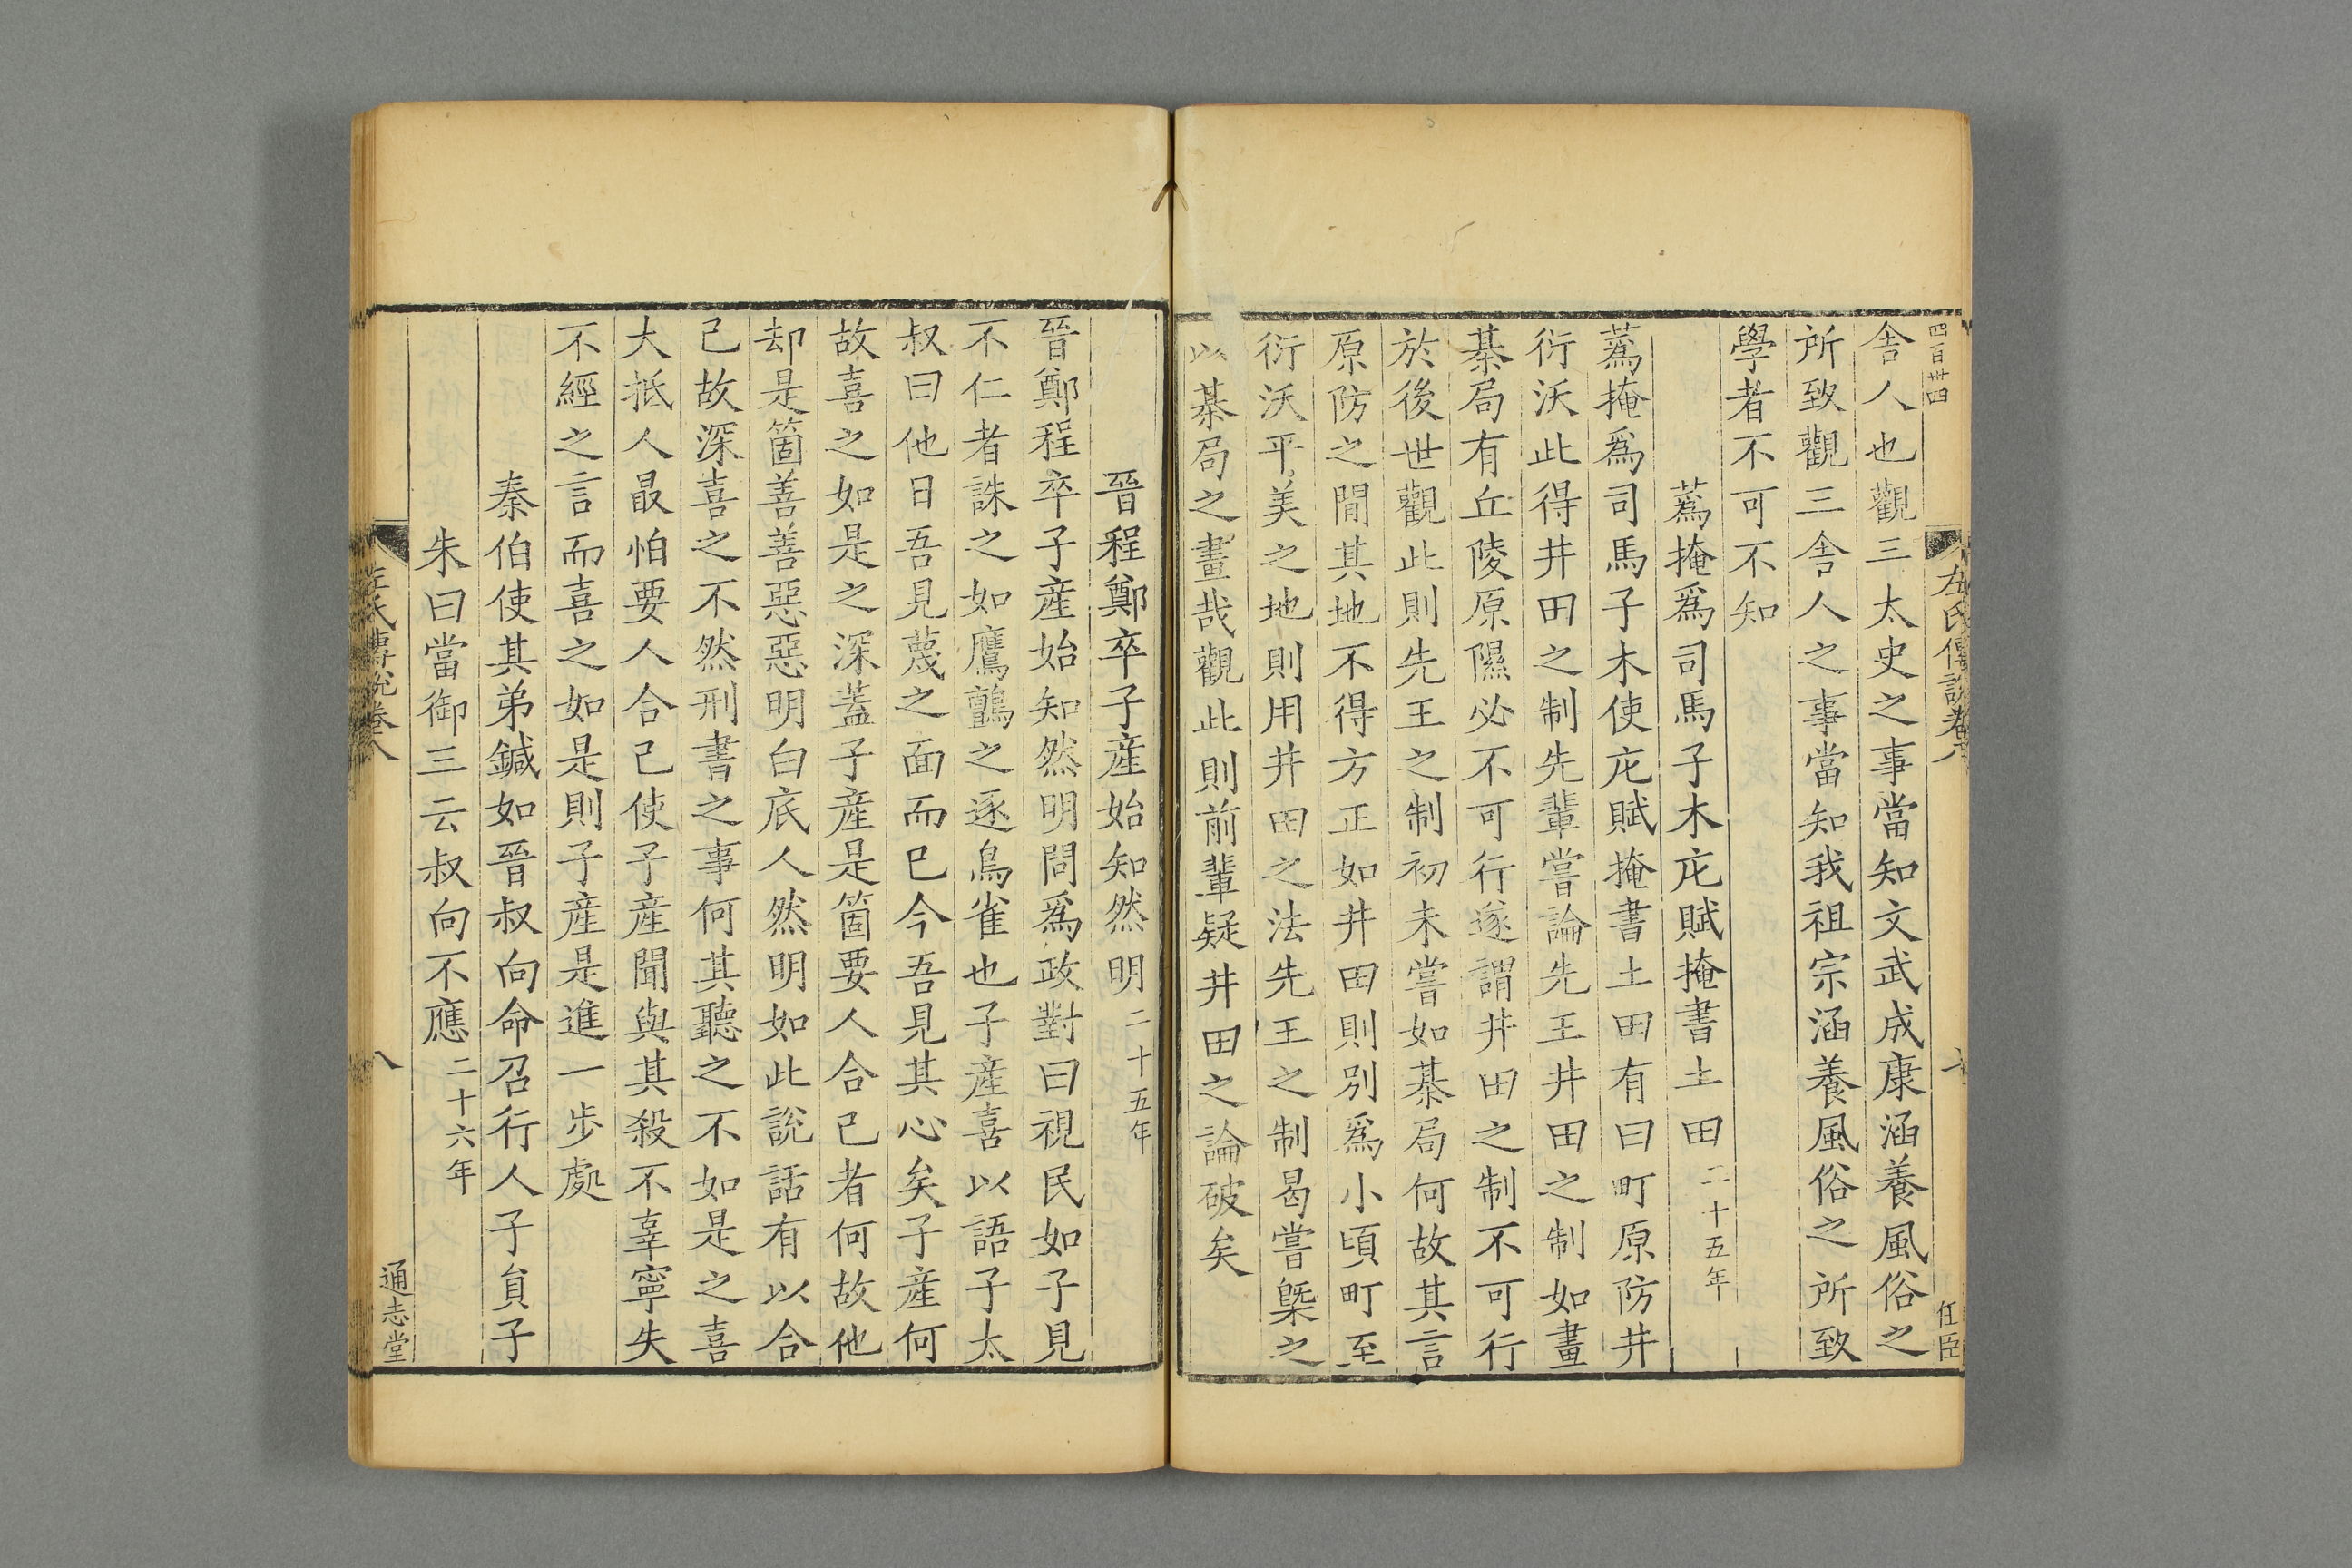 四百廿四
左氏傳說卷八
任臣
舎人也觀三太史之事當知文武成康涵養風俗之
所致觀三舎人之事當知我祖宗涵養風俗之所致
學者不可不知
蔿掩爲司馬子木庀賦掩書土田二十五年
蔿掩爲司馬子木使庀賦掩書土田有曰町原防井
衍沃此得井田之制先輩嘗論先王井田之制如畫
棊局有丘陵原隰必不可行遂謂井田之制不可行
於後世觀此則先王之制初未嘗如棊局何故其言
原防之閒其地不得方正如井田則別爲小頃町至
衍沃平美之地則用井田之法先王之制曷嘗槩之
以棊局之畫哉觀此則前輩疑井田之論破矣
晉程鄭卒子産始知然明二十五年
晉鄭程卒子産始知然明問爲政對曰視民如子見
不仁者誅之如鷹鸇之逐鳥雀也子産喜以語子太
叔曰他日吾見蔑之面而巳今吾見其心矣子産何
故喜之如是之深蓋子産是箇要人合己者何故他
却是箇善善惡惡明白底人然明如此說話有以合
己故深喜之不然刑書之事何其聽之不如是之喜
大抵人最怕要人合己使子産聞與其殺不辜寧失
不經之言而喜之如是則子産是進一步處
秦伯使其弟鍼如晉叔向命召行人子貟子
朱曰當御三云叔向不應二十六年
左氏傳說卷八
八
通志堂